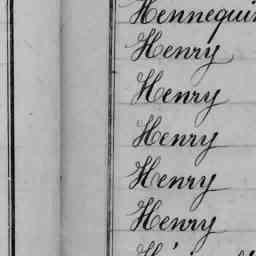 Hennequin
Henry
Henry
Henry
Henry
Henry